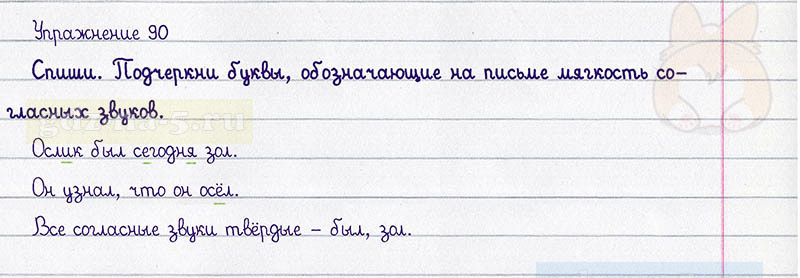 Упражнение 90
Спиши. Подчеркни буквы, обозначающие на письме мягкость со-
гласных звуков.
Ослик был сегодня зол.
Он узнал, что он осёл.
Все согласные звуки твёрдые – был, зол.